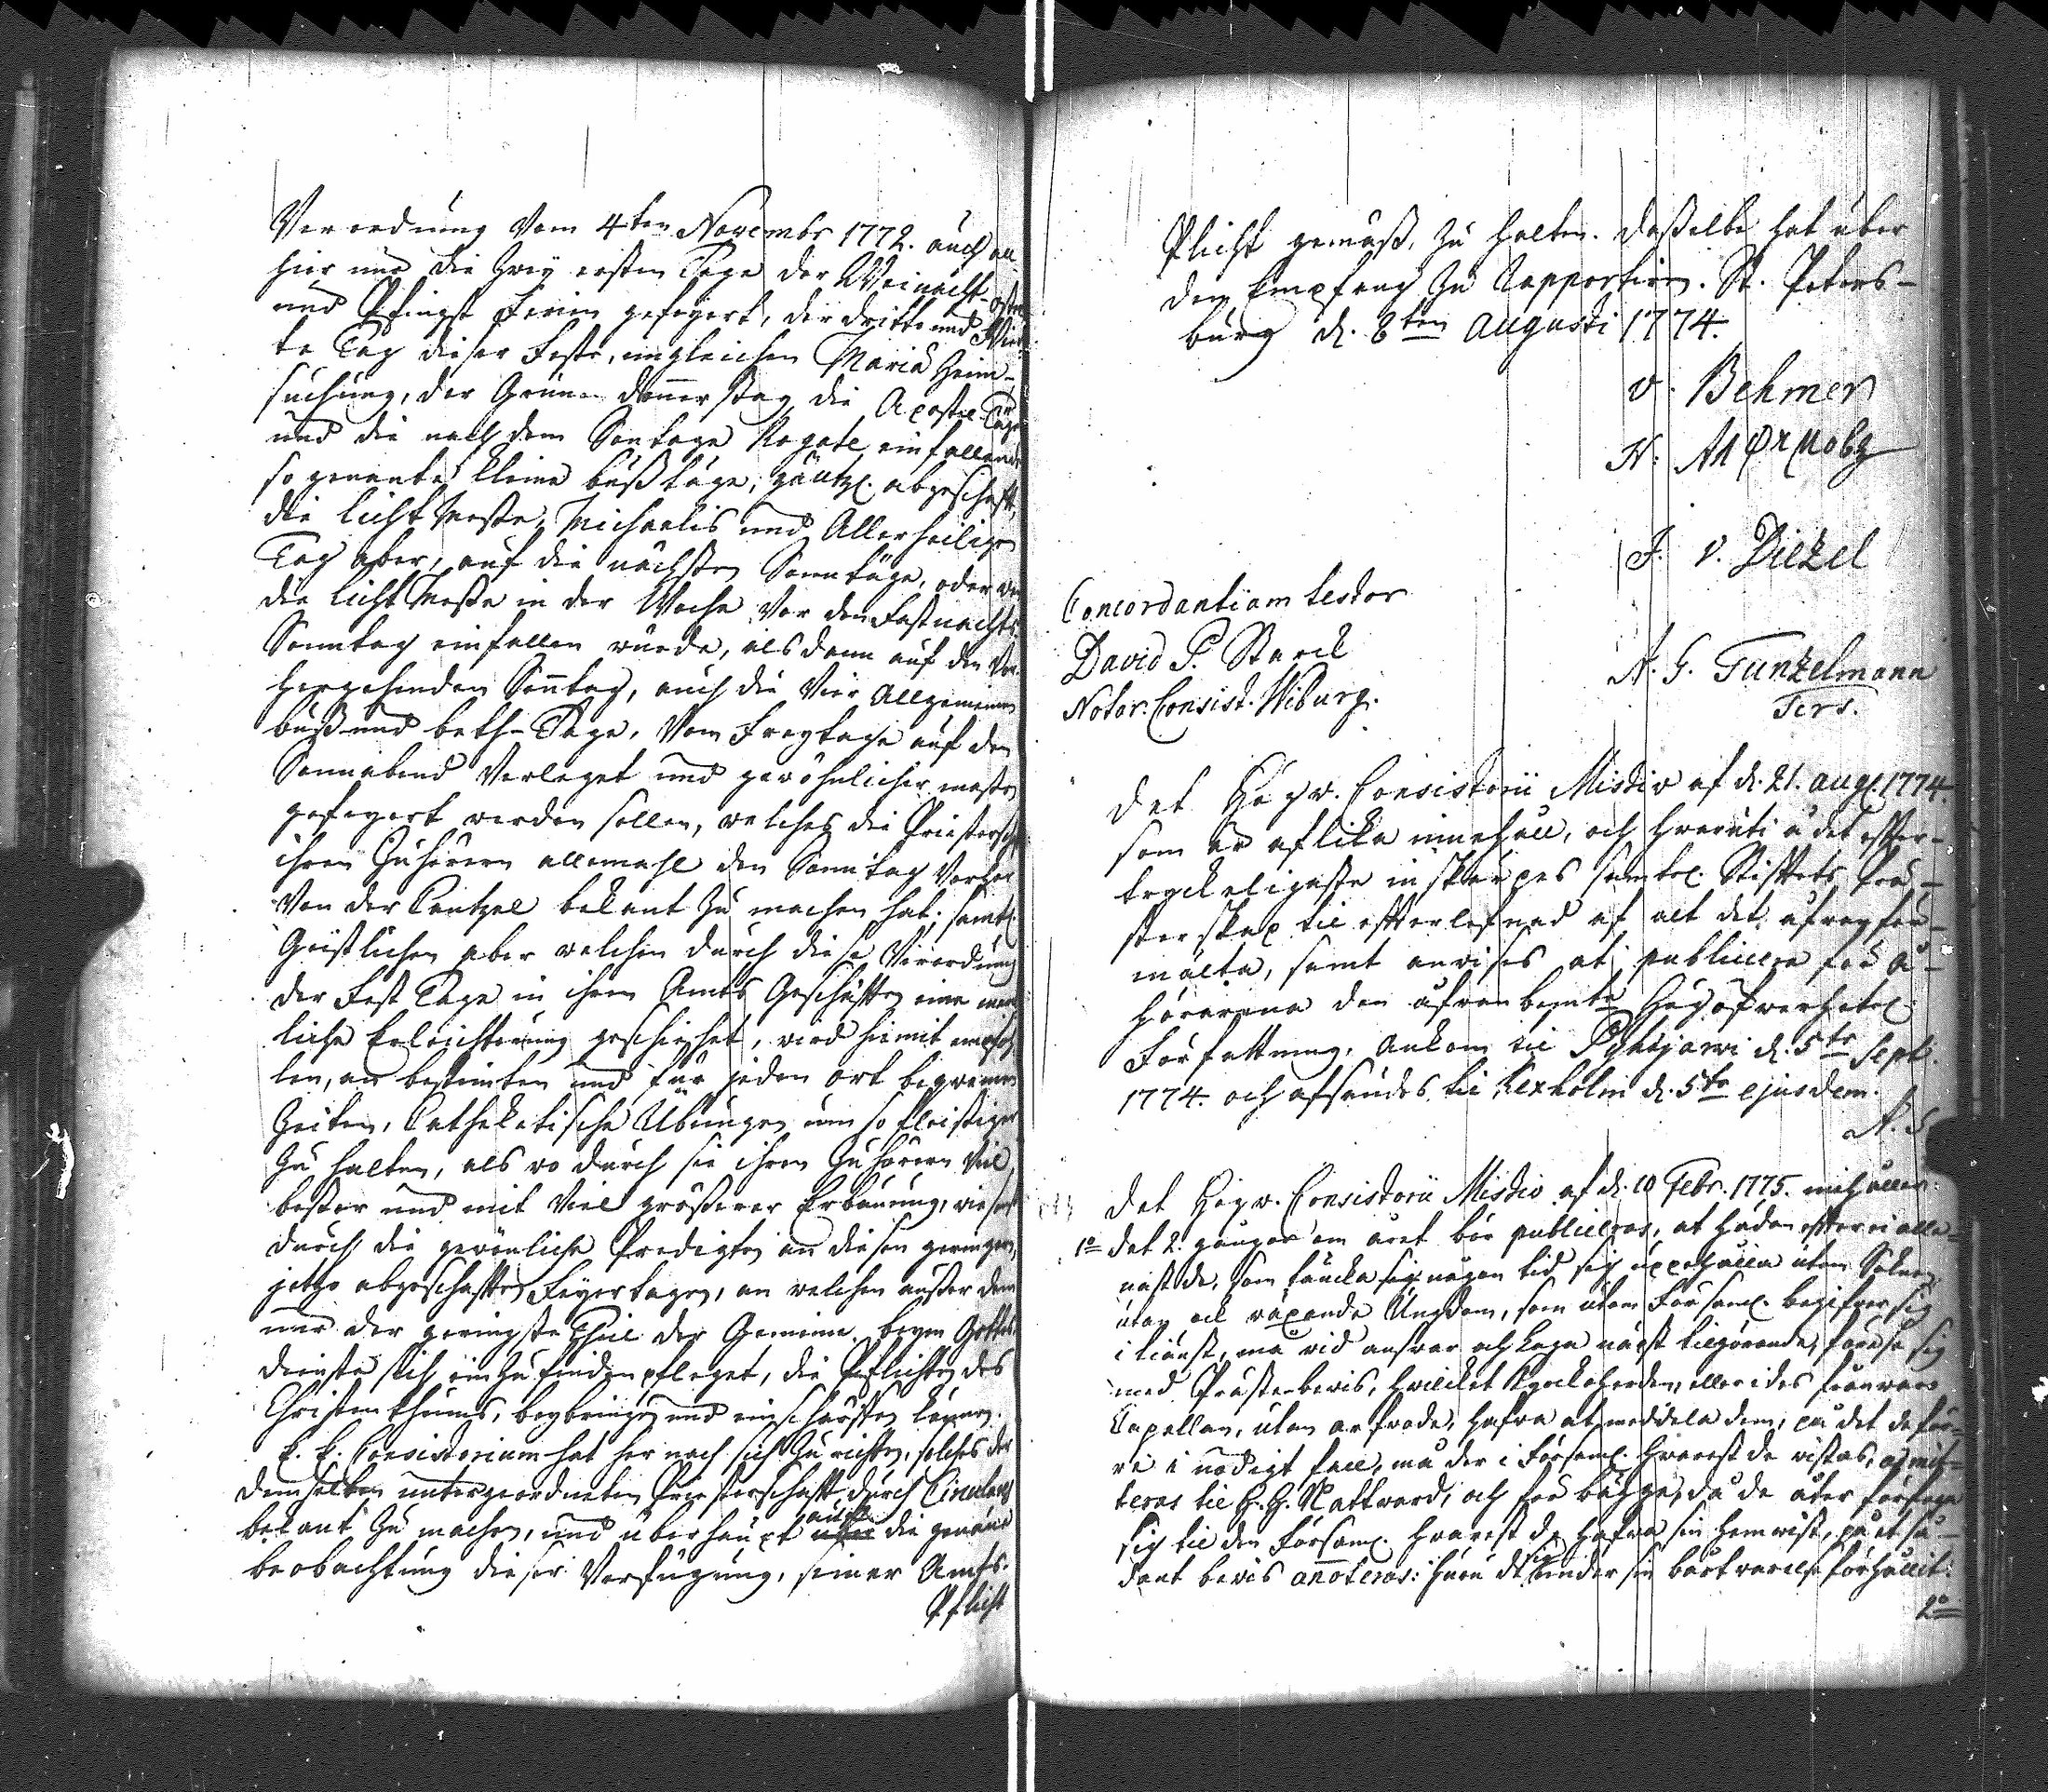 Verordnung vom 4ten Novembr 1772. auch all
hier nur die zwey ersten Tage der Weinacht- Oster
und Pfingst Ferien gefeyert, der dritte und Vier
te Tag dieser Feste, ungleichen Mariä Heim-
suchung, der Grüne donnerstag, die Apostel-Tage
und die nach dem Sontage Rogate einfallende
so genante kleine bußtäge, gäntzl. abgeschaft,
die lichtmeße, Michaelis und Allerheiligen
Tag aber, auf die nächsten Sonntäge, oder wen
die lichtMeße in der Woche vor dem Fastnachts
Sonntag einfallen würde, als dann auf den Vor
hergehenden Sontag, auch die Vier Allgemeinen
buß- und beth-Tage, vom Freytage auf den
Sonnabend verleget und gewöhnlicher maßen
gefeyert werden sollen, welches die Priesterschaft
ihren Zuhörern allemahl den Sonntag vorher
von der Cantzel bekant zu machen hat. samtl.
Geistlichen aber welchen durch diese Verordnung
der Fest Tage in ihren Amts Geschäften eine merk
liche Erleichterung geschiehet, wird hiemit empfoh
len, an bestimten und für jeden ort bequemen
Zeiten, Cathekatische Übungen um so fleißiger
zu halten, als wo durch sie ihren Zuhörern viel
beßer und mit viel größerer Erbauung, wie sonst
durch die gewönliche Predigten an diesen geringern,
jetzo abgeschaften Feyertagen, an welchen außer dem
nur der geringste Theil der Gemeine beym Gottes
dienste sich einzufinden pfleget, die Pflichten des
Christenthums, beybringen und einschärffen können.
E. E. Consistorium hat hernach sich zu richten, solches der
demselben untergeordneten Priesterschafft durch Circulaire
bekant zu machen, und überhaupt auf die genaue
beobachtung dieser Verfügung, seiner Amts-
Pflicht
Plicht gemäß, zu halten. daßelbe hat über
den Empfang zu rapportiren. St. Peters-
burg d. 8ten Augusti 1774.
v. Behmer
N.
F. v. Diezel
Concordantiam testor
David P. Starck
Notar. Consist. Wiburg.
A. G. Tunzelmann
Secr.
Det Högw. Consistorii Missiv af d. 21. Aug. 1774.
som är af lika innehåll, och hvaruti å det efter-
tryckeligaste inskärpes samtel. Stiftets Prä-
sterskap til efterlefnad af alt det ofvanför-
mälta, samt anvises at publicera för å-
hörarena den ofvanbemte Högöfwerhetel.
Författning, ankom til Pyhäjärwi d. 5te Sept.
1774. och afsändes til Kexholm d. 5te ejusdem.
A. S
Det Högw. Consistorii Missiv af d. 10 Febr. 1775. inehåller
1o det 2. gånger om året bör publiceras, at hädanefter ei alle-
nast de, som täncka sig någon tid sig uppehålla utom Soknen,
utan ock växande Ungdom, som utom Församl. begifver sig
i tiänst, må vid answar och laga näpst tilgörande, förese sig
med Prästebevis, hvilcket Kyrckoherden, eller i des frånvaro
Capellan, utan arfvode, hafva at meddela dem, på det de för-
re i nödigt fall, må der i Församl. hvarest de vistas, admit-
teras til H. H. Nattward, och för båhge, då de åter förfoga
sig til den Församl. hvarest de hafva sin hemwist, på et så-
dant bevis anoteras: huru de sig under sin bårtvarelse förhållit.
2o